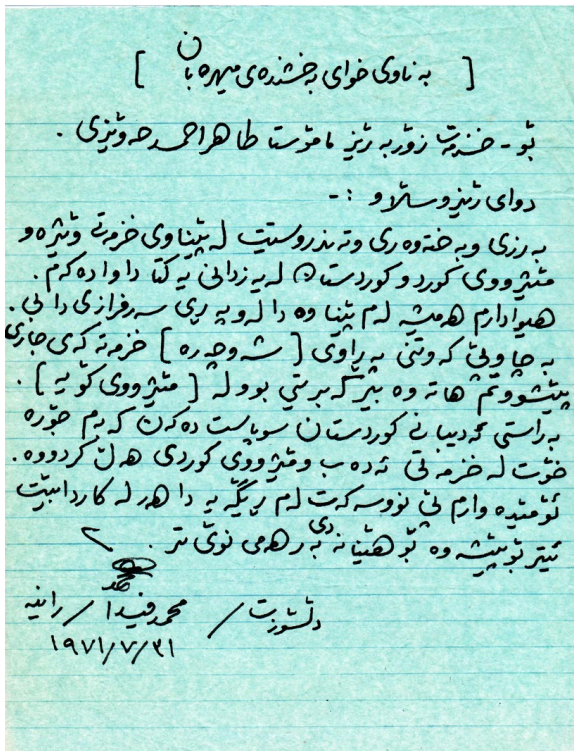 [ بە ناوی خوای بەخشندەی میهرەبان ]
بۆ - خزمەت زۆر بەڕێز مامۆستا طاهر احمد حەوێزی .
دوای ڕێز و سڵاو :-
بەرزی و بەختەوەری و تەندروستیت لە پێناوی خزمەتی وێژە و
مێژووی کورد و کوردستان لە یەزدانی یەکتا داوا دەکەم .
هیوادارم هەمیشە لەم پێناوەدا لەوپەڕی سەرفرازی دا بی .
بە چاوپێ کەوتنی پەڕاوی [ شەوچەرە ] خزمەتەکەی جاری
پێشووتم هاتەوە بیر کە بریتی بوو لە [ مێژووی کۆیە ] .
بەڕاستی ئەدیبانی کوردستان سوپاست دەکەن کە بەم جۆرە
خۆت لە خزمەتی ئەدەب و مێژووی کوردی هەڵ کردووە .
ئومێدەوارم پێ نووسەکەت لەم ڕێگەیەدا هەر لە کاردا بێت
ئیتر بۆ پێشەوە بۆ هێنانەدی بەرهەمی نوێ تر .
دڵسۆزت / محمد فیدا / رانیە
٣١/٧/١٩٧١